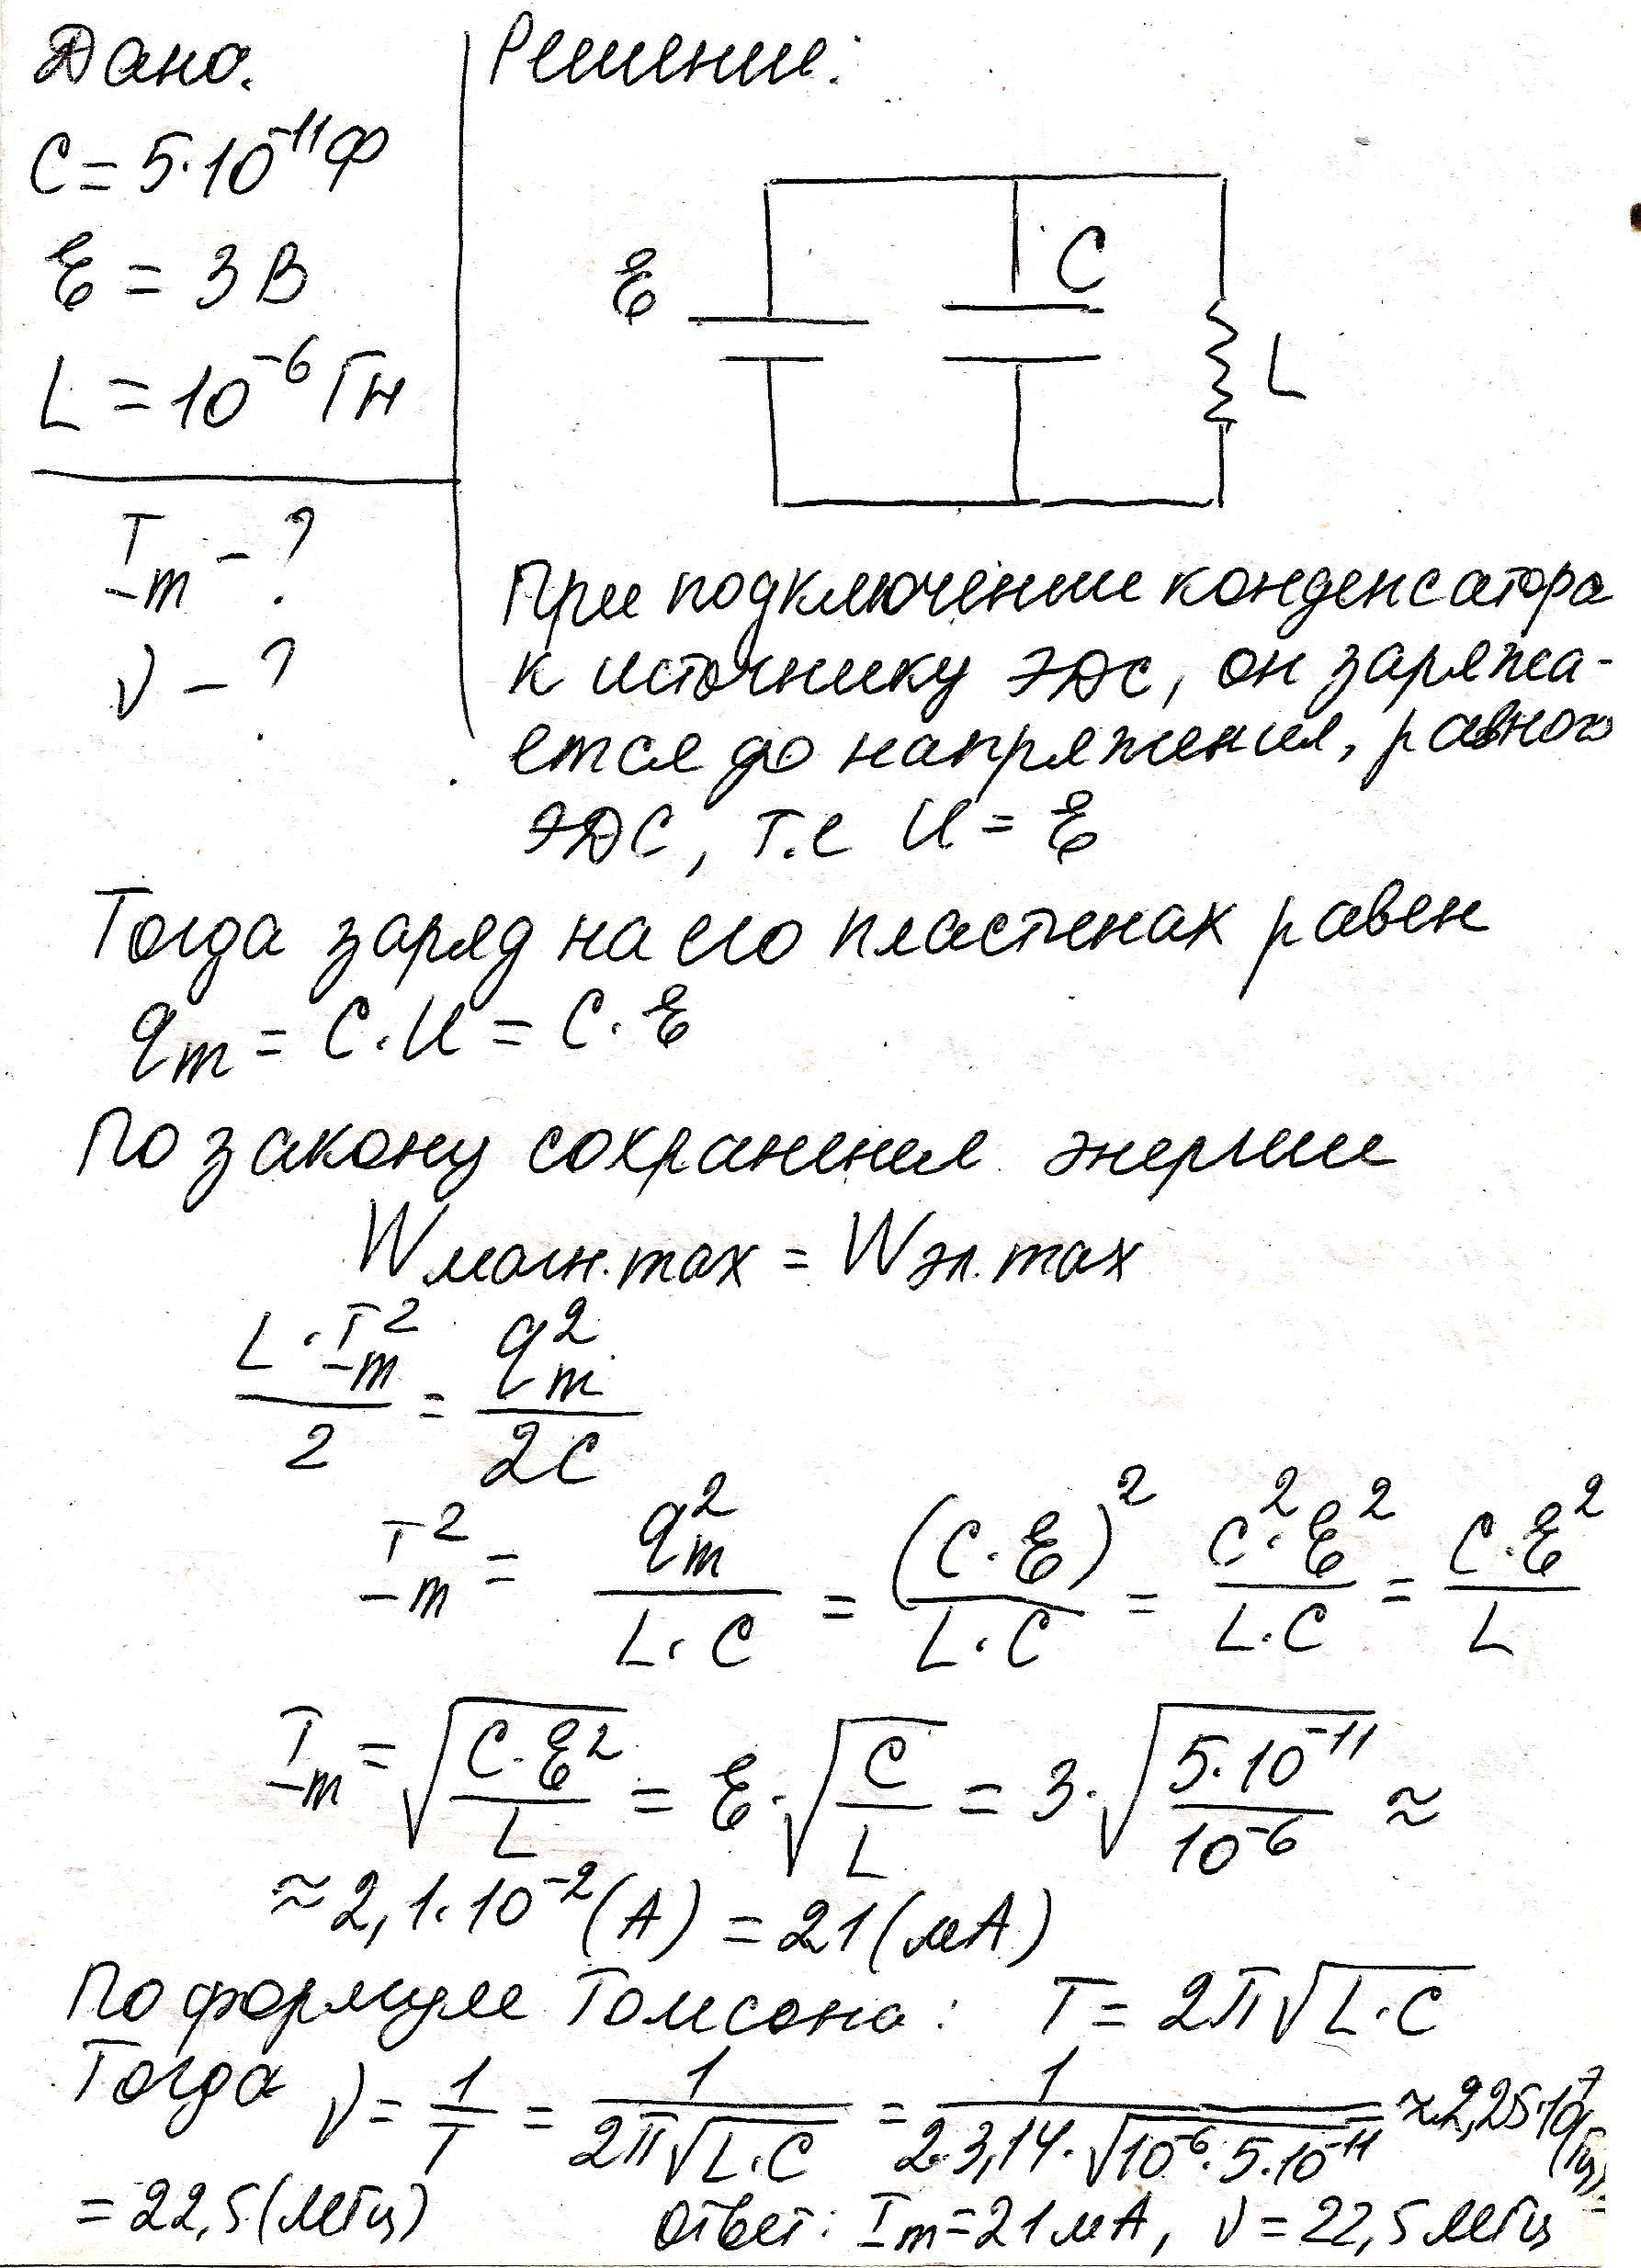 Дано.
C = 5·10⁻¹¹ Ф
ℰ = 3 В
L = 10⁻⁶ Гн
I_m - ?
ν - ?
Решение:
ℰ
C
L
При подключении конденсатора
к источнику ЭДС, он заряжа-
ется до напряжения, равного
ЭДС, т.е U = ℰ
Тогда заряд на его пластинах равен
q_m = C·U = C·ℰ
По закону сохранения энергии
W магн.max = W эл.max
L·I_m²/2 = q_m²/2C
I_m² = q_m²/L·C = (C·ℰ)²/L·C = C²·ℰ²/L·C = C·ℰ²/L
I_m = √(C·ℰ²/L) = ℰ·√(C/L) = 3·√(5·10⁻¹¹/10⁻⁶) ≈
≈ 2,1·10⁻² (А) = 21 (мА)
По формуле Томсона: T = 2π√(L·C)
Тогда ν = 1/T = 1/2π√(L·C) = 1/2·3,14·√(10⁻⁶·5·10⁻¹¹) ≈ 2,25·10⁷ (Гц) =
= 22,5 (МГц)
Ответ: I_m = 21 мА, ν = 22,5 МГц